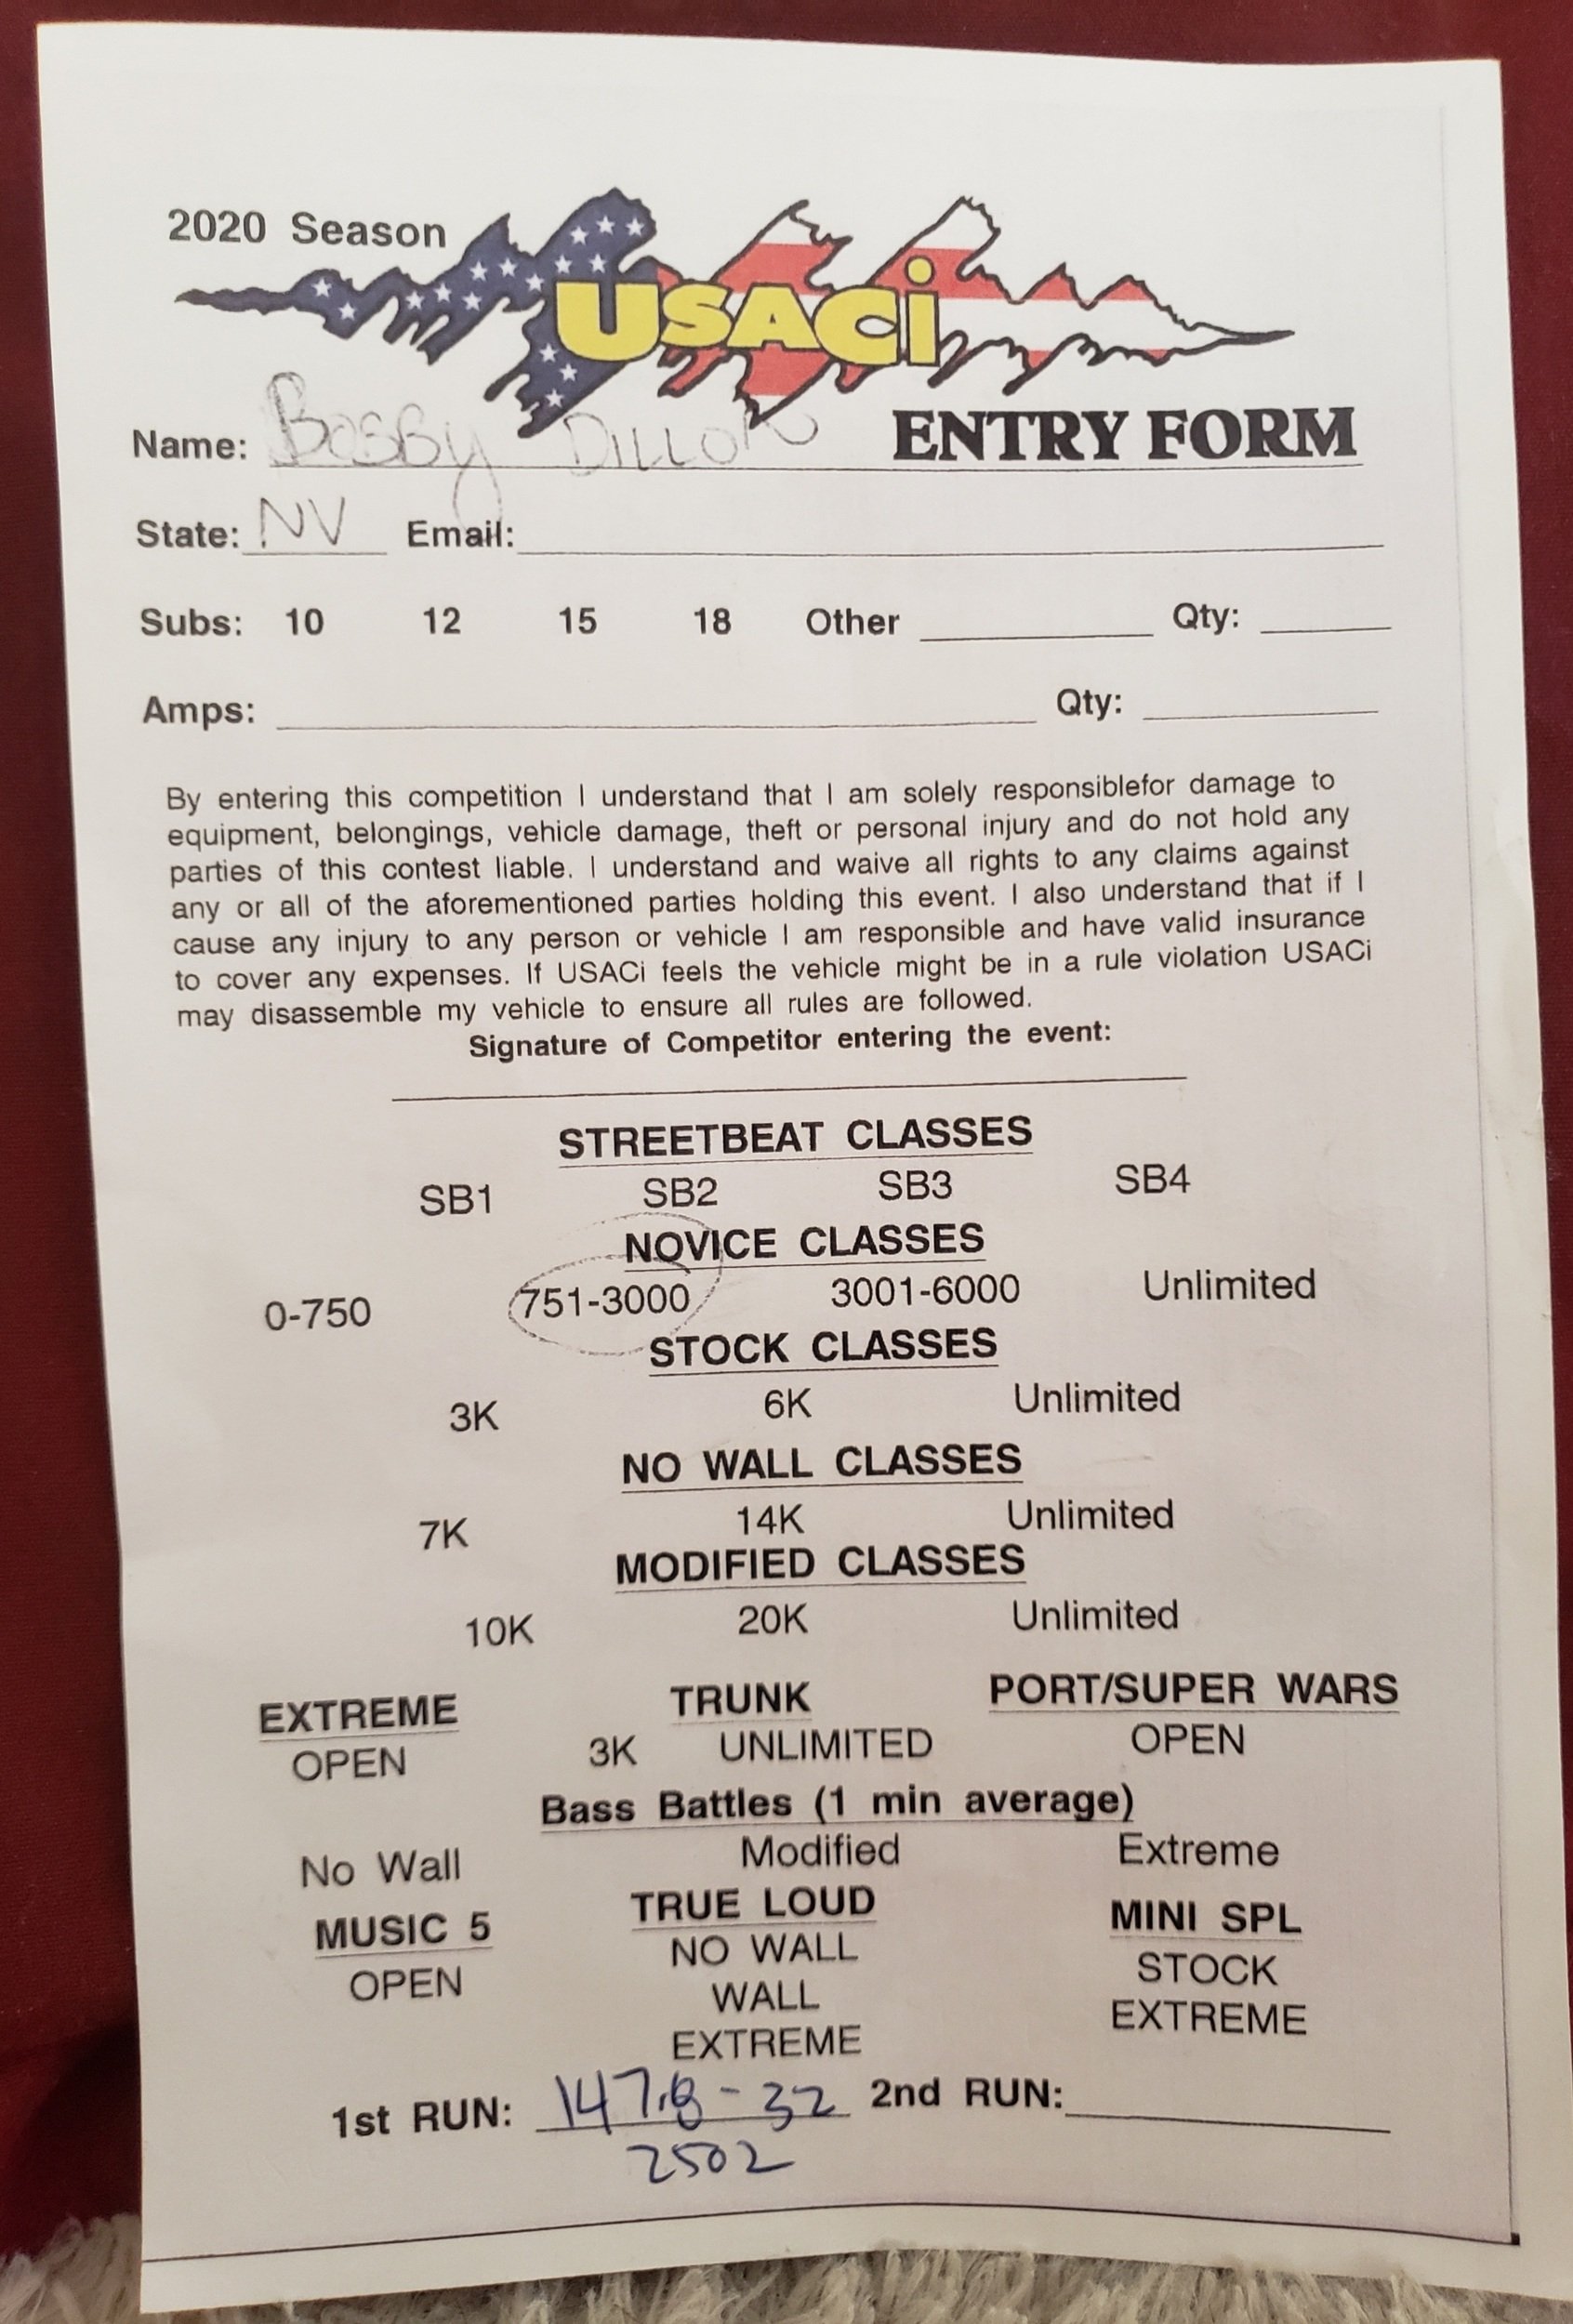 2020 Season
USACi
ENTRY FORM
Name: BOBBY DILLON
State: NV Email:
Subs: 10 12 15 18 Other Qty:
Amps: Qty:
By entering this competition I understand that I am solely responsiblefor damage to
equipment, belongings, vehicle damage, theft or personal injury and do not hold any
parties of this contest liable. I understand and waive all rights to any claims against
any or all of the aforementioned parties holding this event. I also understand that if I
cause any injury to any person or vehicle I am responsible and have valid insurance
to cover any expenses. If USACi feels the vehicle might be in a rule violation USACi
may disassemble my vehicle to ensure all rules are followed.
Signature of Competitor entering the event:
STREETBEAT CLASSES
SB1 SB2 SB3 SB4
NOVICE CLASSES
0-750 751-3000 3001-6000 Unlimited
STOCK CLASSES
3K 6K Unlimited
NO WALL CLASSES
7K 14K Unlimited
MODIFIED CLASSES
10K 20K Unlimited
EXTREME TRUNK PORT/SUPER WARS
OPEN 3K UNLIMITED OPEN
Bass Battles (1 min average)
No Wall Modified Extreme
MUSIC 5 TRUE LOUD MINI SPL
OPEN NO WALL STOCK
WALL EXTREME
EXTREME
1st RUN: 147.8-32 2nd RUN:
2502